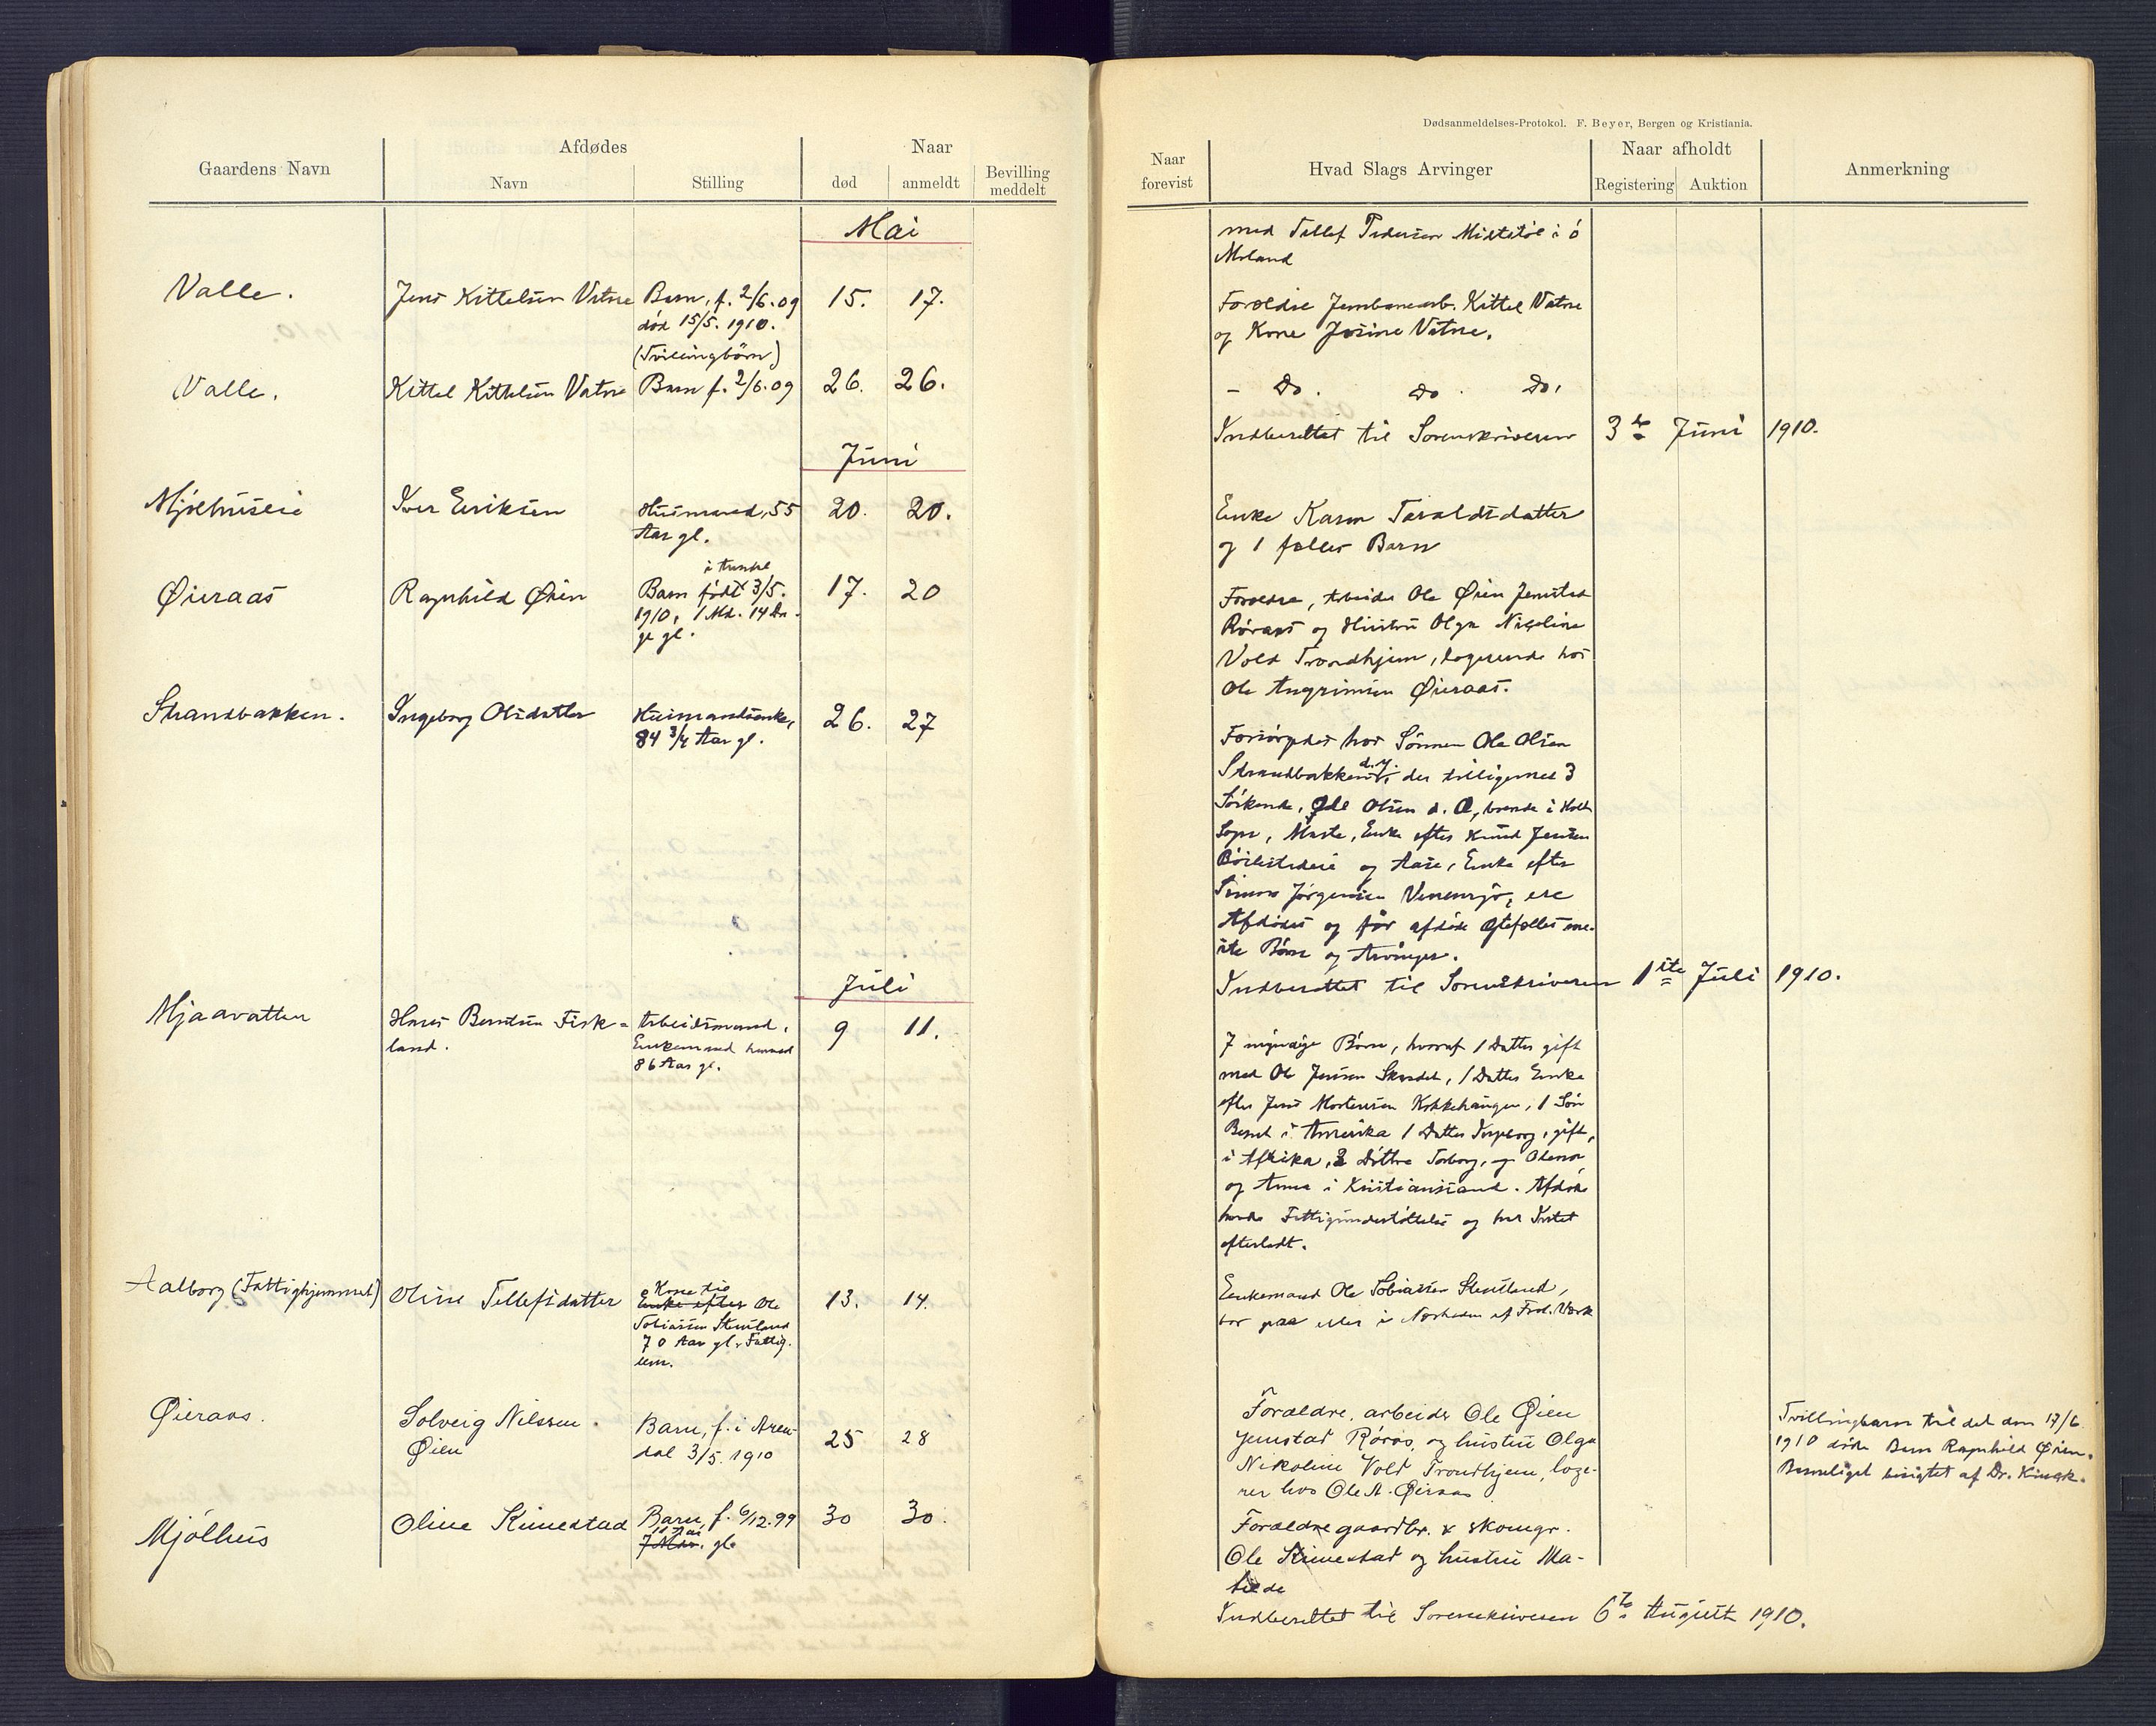 Gaardens Navn
Afdødes
Navn
Stilling
Naar
død
anmeldt
Bevilling meddelt
Mai
Valle.
Jens Kittelsen Vatne
Barn, f. 2/6.09
død 15/5. 1910.
15.
17.
(Tvillingbörn)
Valle.
Kittel Kittelsen Vatne
Barn f. 2/6.09
26.
26.
Juni
Mjölhuseie
Iver Eriksen
Husmand, 55
Aar gl.
20.
20.
Øieraas
Ragnhild Øien
i Arendal
Barn født 3/5.
1910, 1 Md. 14 Da-
ge gl.
17.
20
Strandbakken.
Ingeborg Olsdatter
Husmandsenke,
84 3/4 Aar gl.
26.
27
Juli
Mjaavatten
Hans Berntsen Fisk-
land.
Arbeidsmand,
Enkemand
86 Aar gl.
9
11.
Aalborg (Fattighjemmet)
Oline Tellefsdatter
Kone til
Enke efter Ole
Tobiassen Stensland
70 Aar gl. Fattig-
lem.
13.
14.
Øieraas.
Solveig Nilssen
Øien
Barn, f. i Aren-
dal 3/5. 1910
25
28
Mjölhus
Oline Kimestad
Barn, f. 6/12.99
11 Aar
7 Mdr. gl.
30
30.
Dødsanmeldelses-Protokol. F. Beyer, Bergen og Kristiania.
Naar forevist
Hvad Slags Arvinger
Naar afholdt
Registering
Auktion
Anmerkning
med Tellef Pedersen Midtstöl i ö
Moland
Forældre Jernbanearb. Kittel Vatne
og Kone Josine Vatne.
- Do. Do. Do.
Indberettet til Sorenskriveren 3de Juni 1910.
Enke Karen Taraldsdatter
og 1 fælles Barn
Forældre, Arbeider Ole Øien Jemstad
Røraas og Hustru Olga Nicoline
Vold Trondhjem, logerende hos
Ole Angrimsen Øieraas.
Forsörgedes hos Sönnen Ole Olsen
Strandbakken d.y. der tilligemed 3
Söskende, Ole Olsen d. Æ, boende i Holt
Sogn, Marte, Enke efter Knud Jensen
og Aase, Enke efter
Simon Jörgensen, ere
Afdödes og för afdöde Ægtefælles ene-
ste Börn og Arvinger.
Indberettet til Sorenskriveren 1ste Juli 1910.
7 myndige Börn, hvoraf 1 Datter gift
med Ole Jensen, 1 Datter Enke
efter Jens Mortensen, 1 Sön
Bernt i Amerika 1 Datter Ingeborg, gift,
i Afrika, 2 Döttre Torborg, og
og Anna i Kristianssand. Afdöde
havde Fattigunderstöttelse og har Intet
efterladt.
Enkemand Ole Tobiassen Stensland,
bor paa eller i Nærheden af Frol. Værk
Forældre, arbeider Ole Øien
Jemstad Röros, og hustru Olga
Nikoline Vold Trondhjem, loge-
rer hos Ole A. Øieraas
Tvillingbarn til det den 17/6
1910 döde Barn Ragnhild Øien.
Benseliget besigtet af Dr. Kinck.
Forældre gaardbr. & skomgr.
Ole Kimestad og hustru Ma-
tilde
Indberettet til Sorenskriveren 6te August 1910.